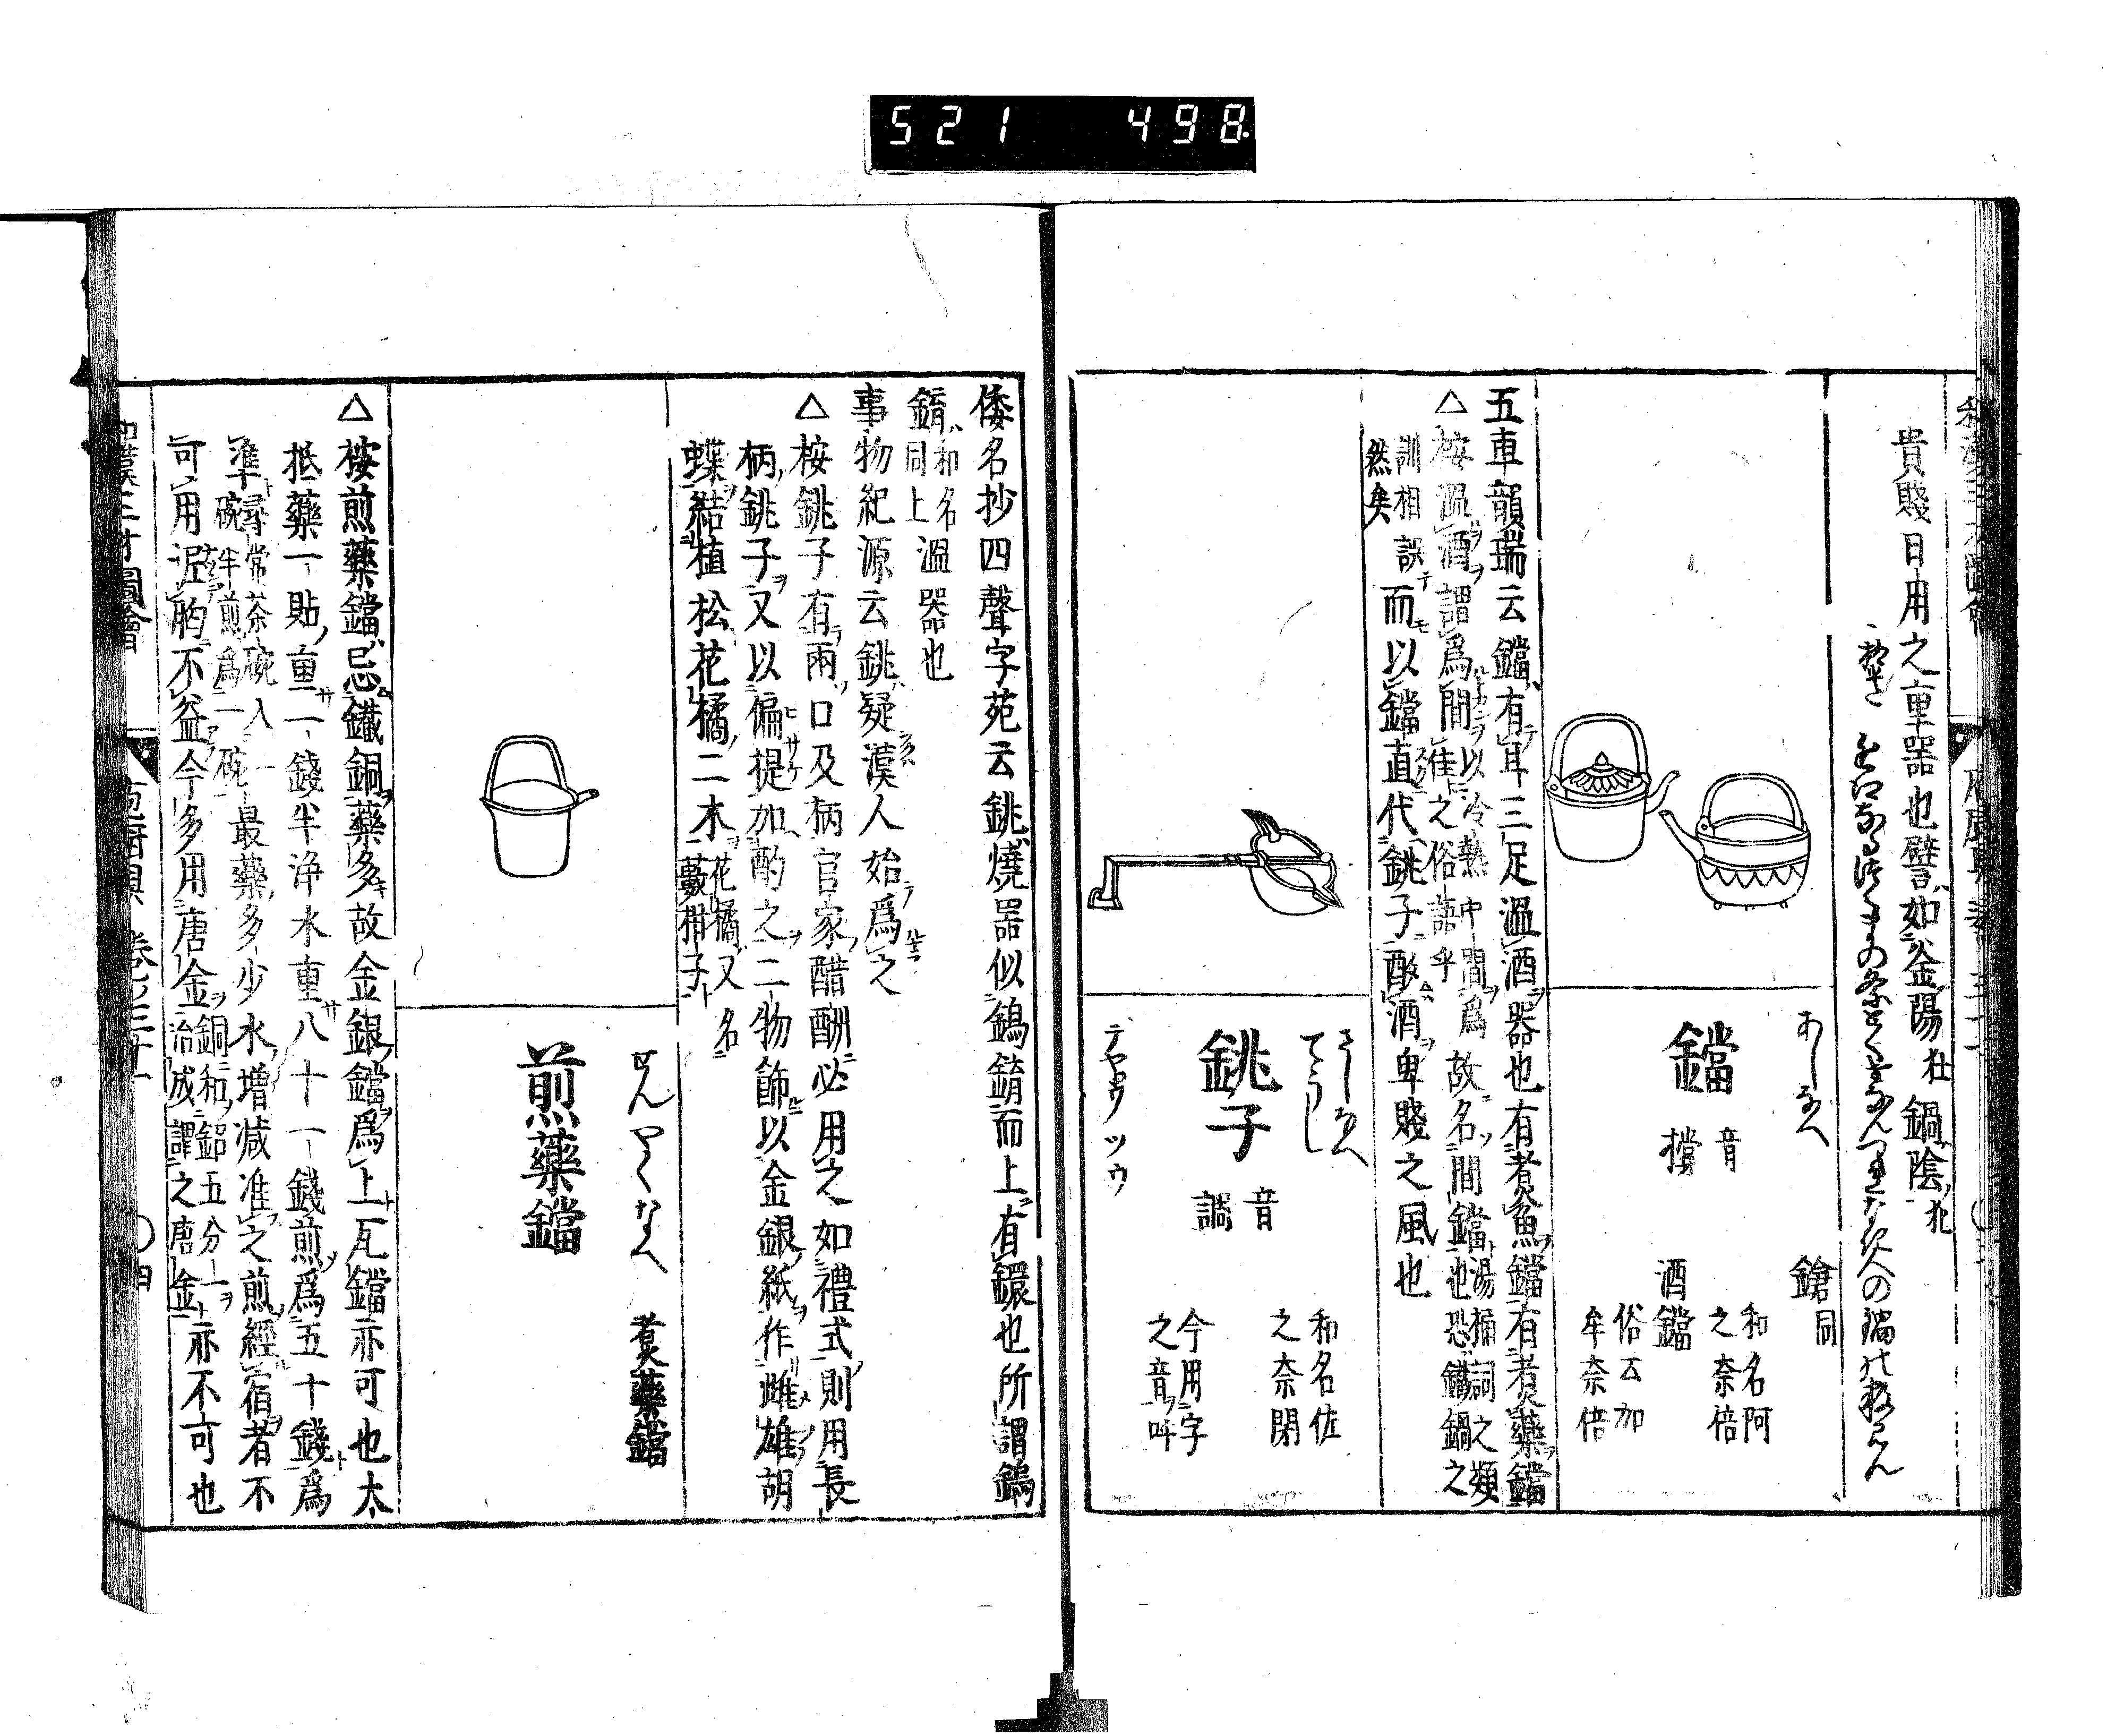 521 498
貴賤日用之重器也譬如釜陽牡鍋陰牝
あしなべ
鐺
音
撐
鎗同
和名阿
之奈倍
酒鐺
俗云加
牟奈倍
五車韻瑞云鐺有耳三足溫酒器也有煮魚鐺有煮藥鐺
△按溫酒謂爲間以冷熱中間爲
准之俗語乎故名間鐺湯桶詞之類
也恐鐵鍋之
訓相誤
然矣而以鐺直代銚子酌酒卑賤之風也
さしなべ
てうし
銚子
音
調
テヤ゜ウ ツウ
和名佐
之奈閇
今用字
之音呼
倭名抄四聲字苑云銚燒器似鎢錥而上有鐶也所謂鎢
錥和名
同上溫器也
事物紀源云銚疑漢人始爲之
△按銚子有兩口及柄官家醋酬必用之如禮式則用長
柄銚子又以偏提加酌之二物飾以金銀紙作雌雄胡
蝶結植松花橘二木花橘又名
藪柑子
せんやくなべ
煎藥鐺
煮藥鐺
△按煎藥鐺忌鐵銅藥多故金銀鐺爲上瓦鐺亦可也大
抵藥一貼重一錢半淨水重八十一錢煎爲五十錢爲
準尋常茶碗入一
碗半煎爲一碗最藥多少水增減准之煎經宿者不
可用泥胞不益今多用唐金銅和鉛五分一
冶成謂之唐金亦不可也
和漢三才圖會 庖廚具 卷之三十一 〇四